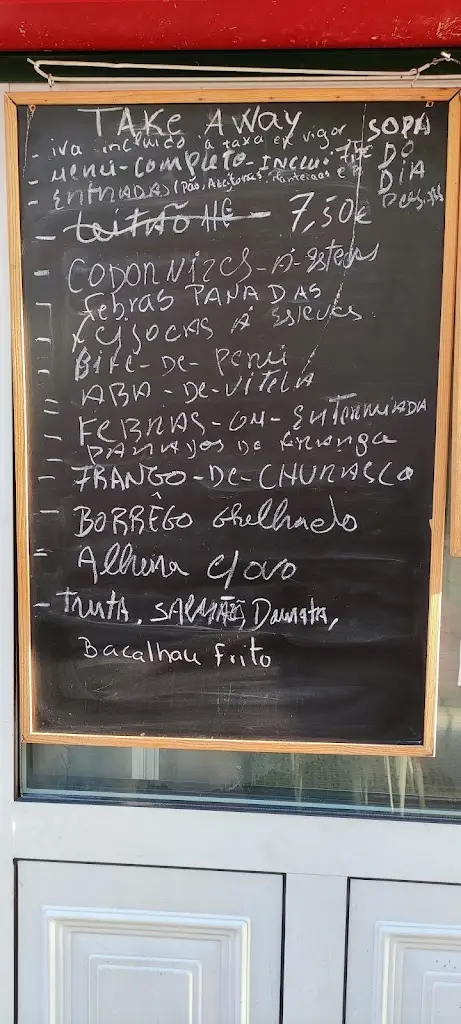 TAKE AWAY
- iva incluido à taxa em vigor
- Menu-Completo-Inclui:
SOPA
DO
DIA
- ENTRADAS (Pão, Azeitonas, Manteigas e
- Leitão 7,50€
- CODORNIZES-À-
- Febras PANADAS
À ESTEVES
- Bife-de-Peru
- ABA-DE-VITELA
- FEBRAS-OU-ENTREMEADA
PANADOS DE FRANGO
- FRANGO-DE-CHURASCO
- BORRÊGO Ghelhado
- Alheira c/ovo
- Truta, SALMÃO, Dourata,
Bacalhau Frito